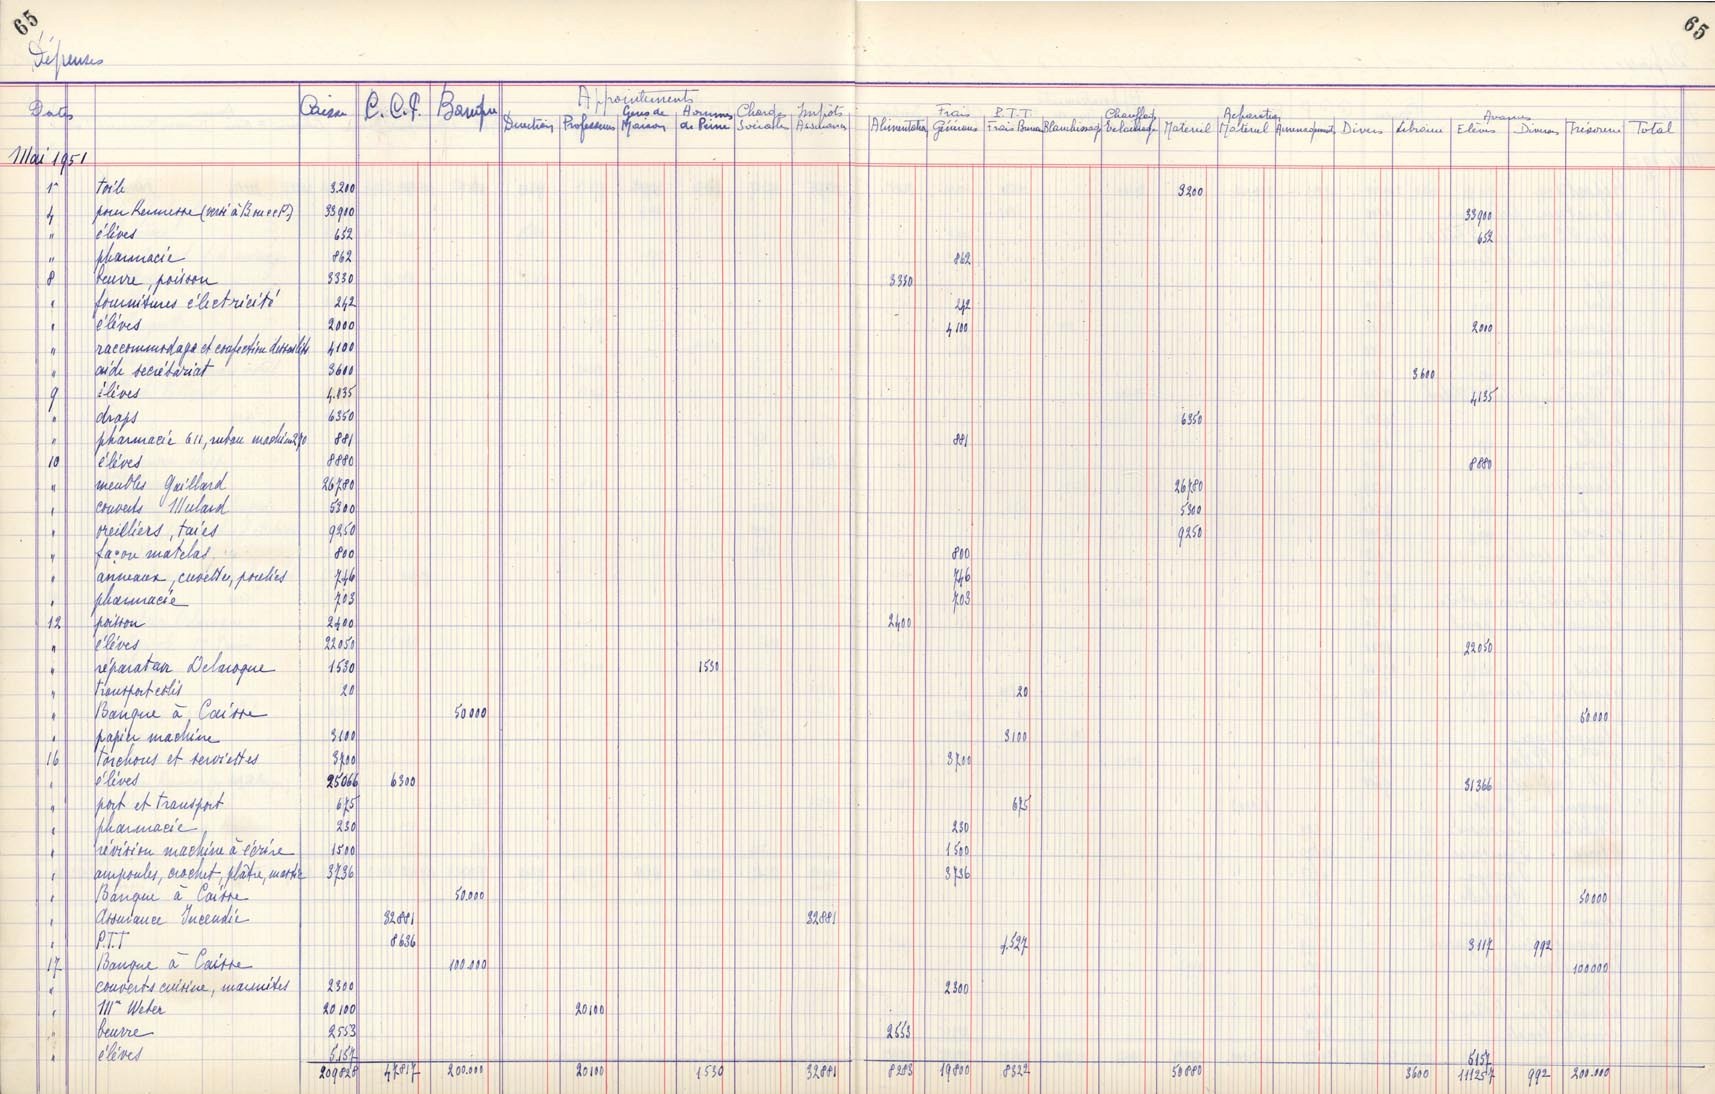 65 65
Dépenses
Dates Caisse C.C.P. Banque Appointements Direction Professeurs Gens de Maison Hommes de Peine Charges Sociales Impôts Assurances Alimentation Frais Généraux P.T.T. Frais Bureau Blanchissage Chauffage Eclairage Matériel Réparation Matériel Aménagement Divers Librairie Avances Elèves Diverses Trésorerie Total
Mai 1951
1er toile 3200 3200
4 pour Kermesse 33900 33900
" élèves 652 652
" pharmacie 862 862
8 beurre, poisson 3330 3330
" fournitures électricité 242 242
" élèves 2000 2000
" raccommodage et confection 4100 4100
" aide secrétariat 3600 3600
9 élèves 4.135 4135
" draps 6350 6350
" pharmacie 611, ruban machine 270 881 881
10 élèves 8880 8880
" meubles Gaillard 26780 26780
" couverts Mulard 5300 5300
" oreillers, taies 9250 9250
" façon matelas 800 800
" anneaux, cuvettes, poulies 746 746
" pharmacie 703 703
12 poisson 2400 2400
" élèves 22050 22050
" réparation Delaroque 1530 1530
" transport colis 20 20
" Banque à Caisse 50000 50.000
" papier machine 3100 3100
16 torchons et serviettes 3700 3700
" élèves 25066 6300 31366
" port et transport 675 675
" pharmacie 230 230
" révision machine à écrire 1500 1500
" ampoules, crochet, plâtre, mastic 3736 3736
" Banque à Caisse 50.000 50000
" Assurance Incendie 32881 32881
" P.T.T 8636 4.527 3117 992
17 Banque à Caisse 100.000 100000
" couverts cuisine, marmites 2300 2300
" Mr Weber 20100 20100
" beurre 2553 2553
" élèves 5157 5157
209828 47817 200.000 20100 1530 32881 8283 19800 8322 50880 3600 111257 992 200.000